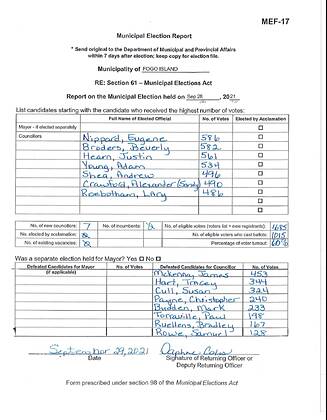 MEF-17
Municipal Election Report
* Send original to the Department of Municipal and Provincial Affairs
within 7 days after election; keep copy for election file.
Municipality of FOGO ISLAND
RE: Section 61 – Municipal Elections Act
Report on the Municipal Election held on Sep 28, 2021
List candidates starting with the candidate who received the highest number of votes:
Full Name of Elected Official No. of Votes Elected by Acclamation
Mayor - if elected separately
Councillors Nippard, Eugene 586
Broders, Beverly 582
Hearn, Justin 561
Young, Adam 534
Shea, Andrew 496
Crawford, Alexander (Sandy) 490
Roebotham, 486
No. of new councillors: 7 No. of incumbents: No. of eligible voters (voters list + new registrants): 1685
No. elected by acclamation: No. of eligible voters who cast ballots: 1015
No. of existing vacancies: Percentage of voter turnout: 60%
Was a separate election held for Mayor? Yes No
Defeated Candidates for Mayor (if applicable) No. of Votes Defeated Candidates for Councillor No. of Votes
McKenna, James 453
Hart, Tracey 344
Cull, Susan 324
Payne, Christopher 240
Budden, Mark 233
Torraville, Paul 198
Ruellens, Bradley 167
Rowe, Samuel 128
September 29, 2021 Daphne
Date Signature of Returning Officer or
Deputy Returning Officer
Form prescribed under section 98 of the Municipal Elections Act